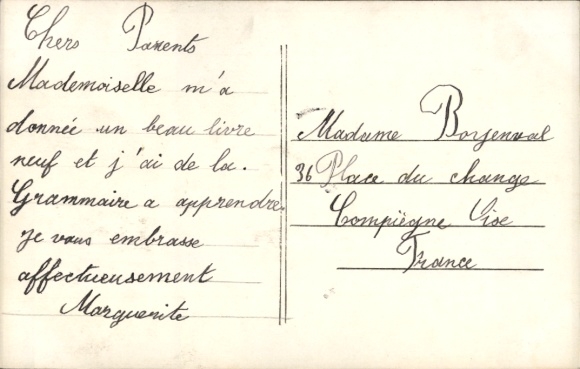 Chers Parents
Mademoiselle m'a
donnée un beau livre
neuf et j'ai de la.
Grammaire a apprendre.
Je vous embrasse
affectueusement
Marguerite
Madame Boyenval
36 Place du change
Compiègne Oise
France